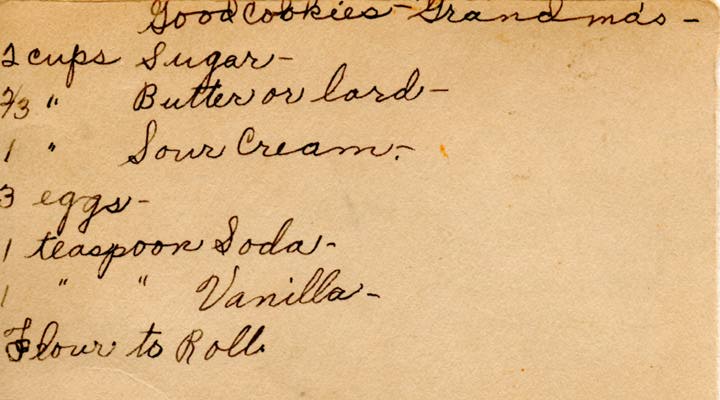 Good Cookies - Grandma's -
2 cups Sugar -
2/3 " Butter or lard -
1 " Sour Cream. -
3 eggs -
1 teaspoon Soda -
1 " " Vanilla -
Flour to Roll.